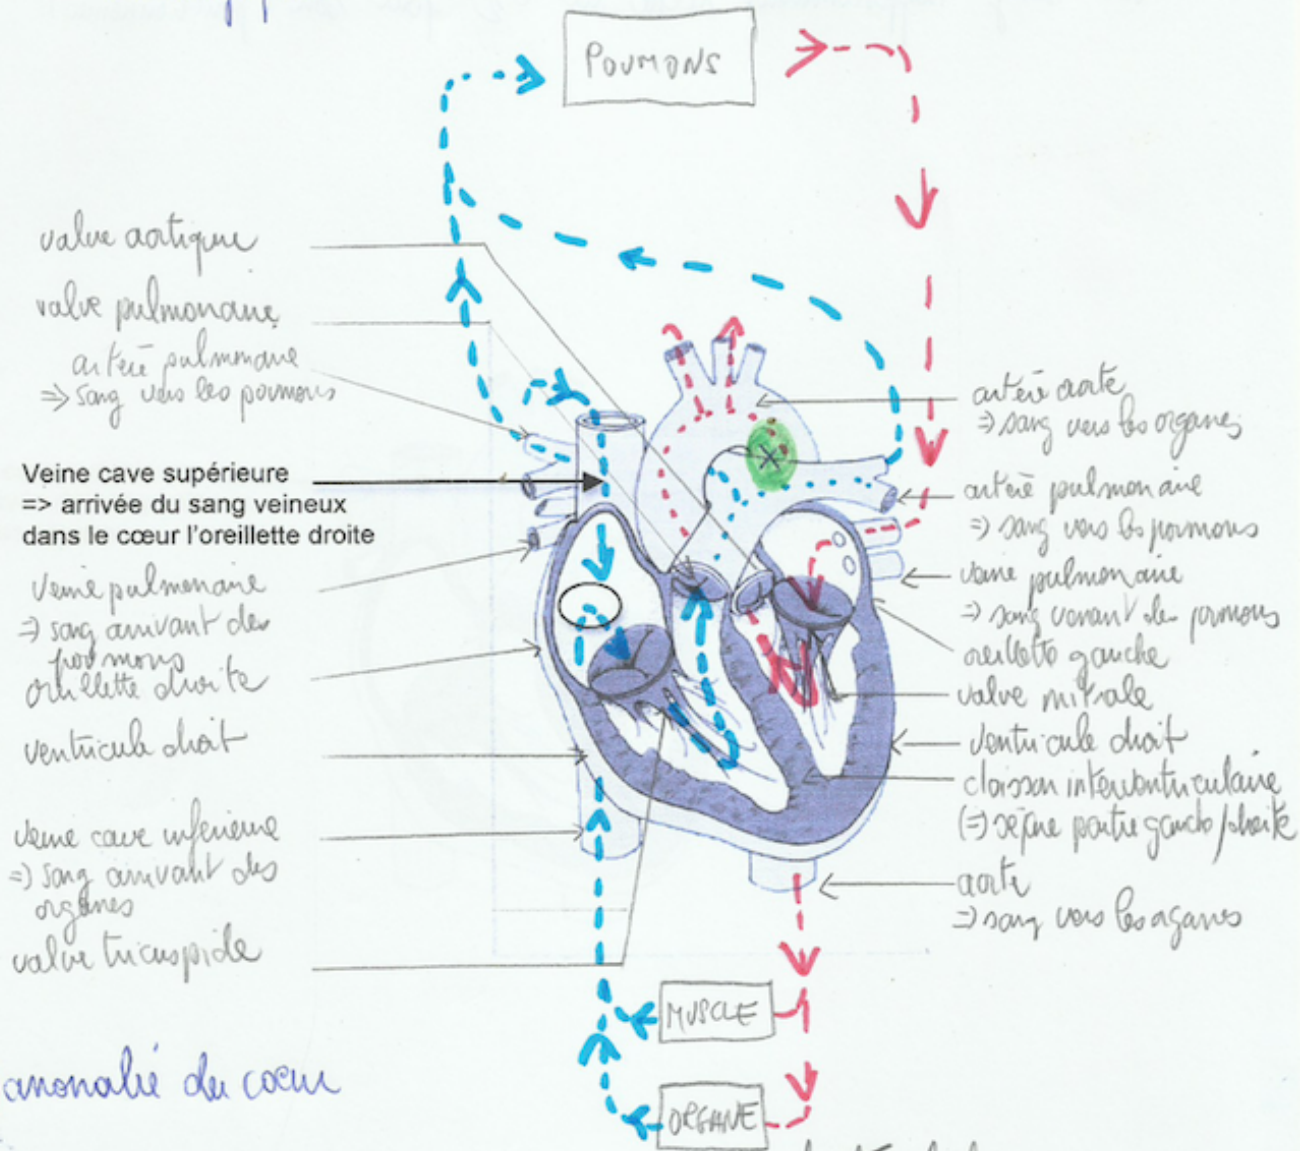 POUMONS
valve aortique
valve pulmonaire
artère pulmonaire
=> sang vers les poumons
Veine cave supérieure
=> arrivée du sang veineux
dans le cœur l'oreillette droite
veine pulmonaire
=> sang arrivant des
poumons
oreillette droite
ventricule droit
veine cave inférieure
=> sang arrivant des
organes
valve tricuspide
artère aorte
=> sang vers les organes
artère pulmonaire
=> sang vers les poumons
veine pulmonaire
=> sang venant des poumons
oreillette gauche
valve mitrale
ventricule droit
cloison interventriculaire
(=> sépare partie gauche/droite
aorte
=> sang vers les organes
MUSCLE
ORGANE
anomalie du coeur